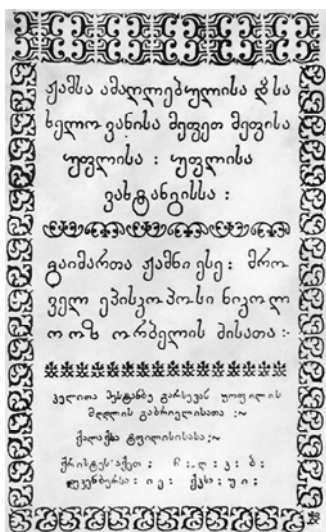 ჟამსა ამაღლებულისა და სა
ხელოვანისა მეფეთ მეფისა
უფლისა : უფლისა
ვახტანგისსა :
გაიმართა ჟამნი ესე : მრო
ველ ეპისკოპოსი ნიკოლ
ოოზ ორბელის მისათა :
ჴელითა მესტანბე გარსევან ყოფილის
მღდლის გაბრიელისათა :~
ქალაქსა ტფილისისასა :~
ქრისტეს აქეთ : ჩ : ღ : კ : ბ :
დეკენბერსა : ი ე : ქკსა : უ ი :